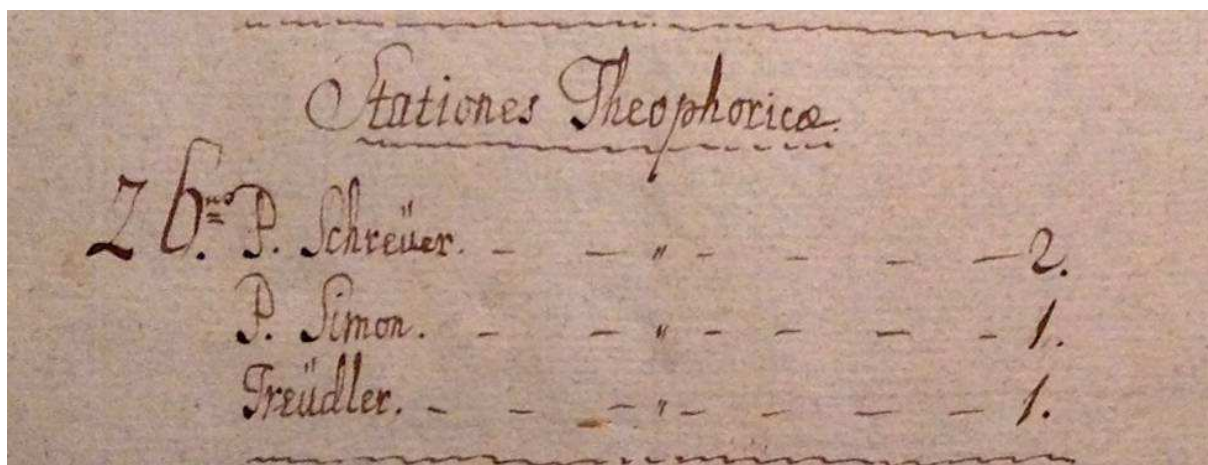 Stationes Theophoricæ.
26.no P. Schreüer. - - " - - - - 2.
P. Simon. - - " - - - - 1.
Freüdler. - - - " - - - - 1.